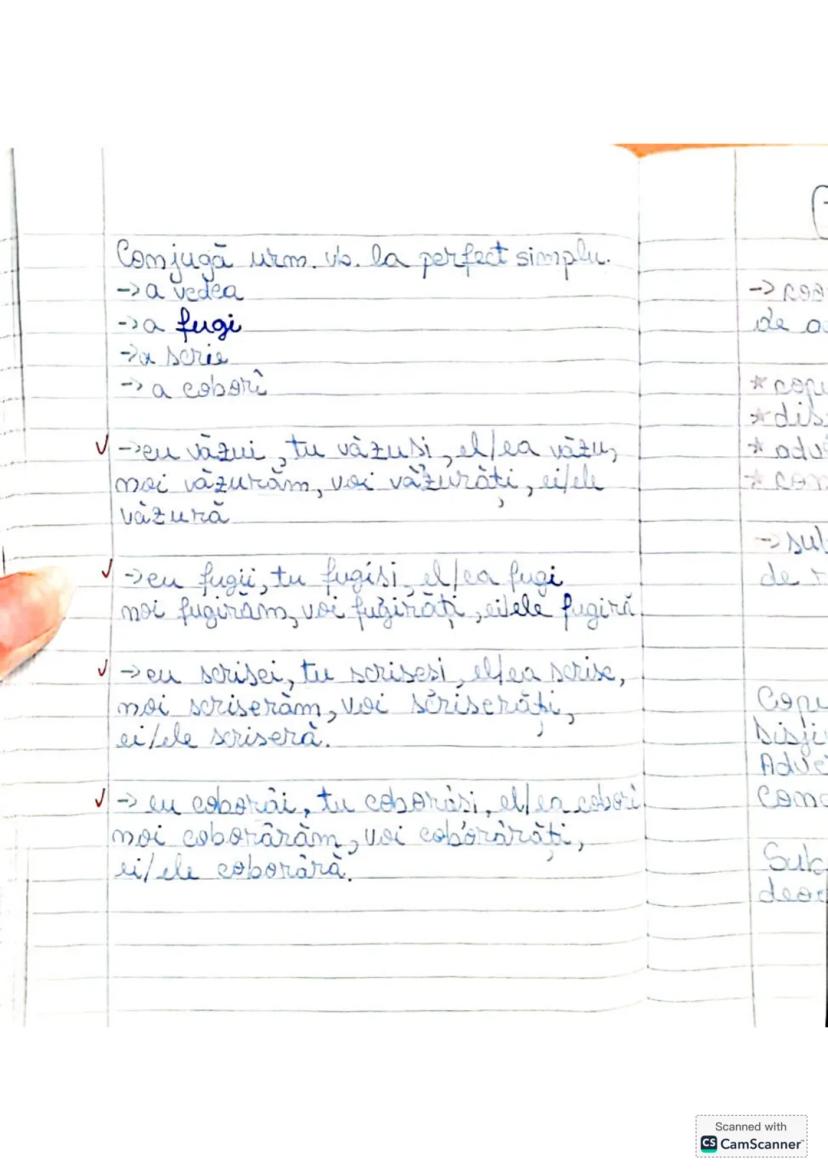 Conjugă urm. vb. la perfect simplu.
-> a vedea
-> a fugi
-> a scrie
-> a coborî
-> eu văzui, tu văzuși, el/ea văzu,
noi văzurăm, voi văzurăți, ei/ele
văzură
-> eu fugii, tu fugiși, el/ea fugi
noi fugirăm, voi fugirăți, ei/ele fugiră
-> eu scrisei, tu scriseși, el/ea scrise,
noi scriserăm, voi scriserăți,
ei/ele scriseră.
-> eu coborâi, tu coborâși, el/ea coborî
noi coborârăm, voi coborârăți,
ei/ele coborâră.
->
de
*
*
*
*
->
de
Scanned with
CS CamScanner